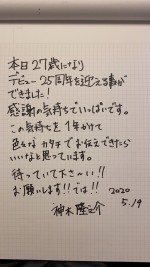 本日27歳になり
デビュー25周年を迎える事が
できました！
感謝の気持ちでいっぱいです。
この気持ちを1年かけて
色々なカタチでお伝えできたら
いいなと思っています。
待っていて下さ〜い!!
お願いします!!では!!
2020
5.19
神木隆之介